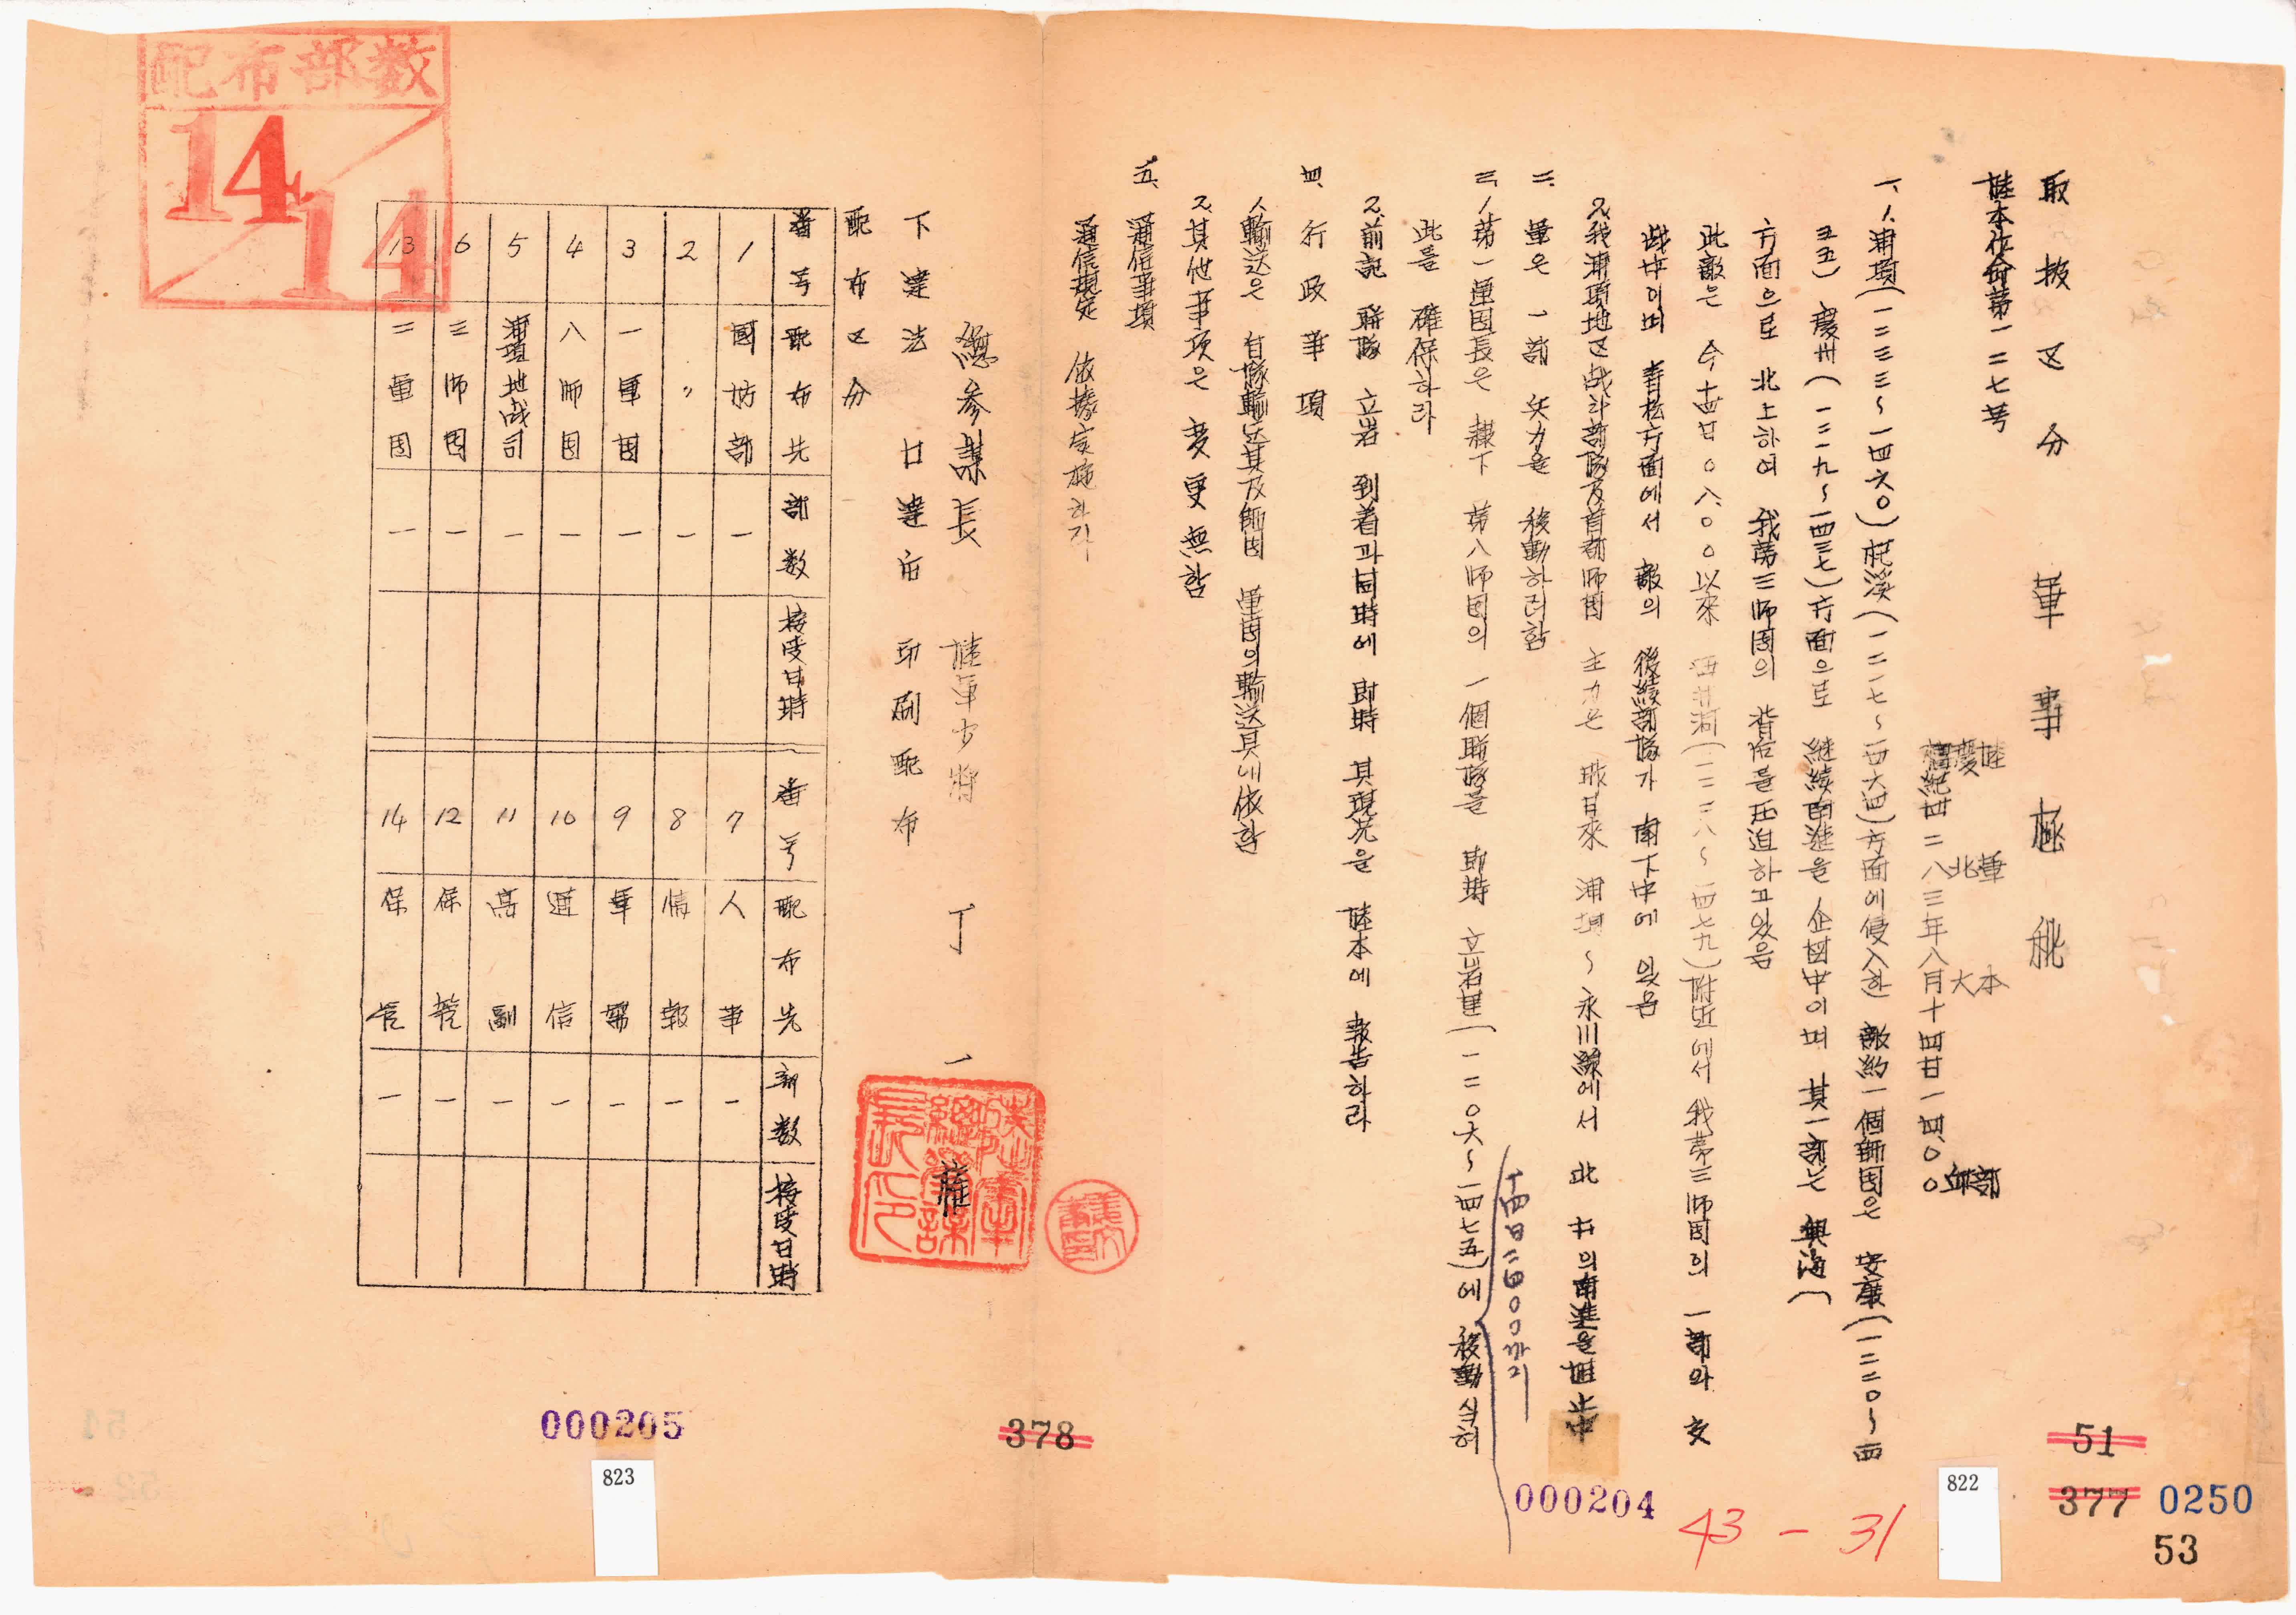 取扱区分 軍事極秘
陸本作命第一二七号
陸軍本部
慶北大邱
檀紀四二八三年八月十四日一四、〇〇
一、1、浦項(一二三三~一四六〇)杞溪(一二一七~一四六四)方面에侵入한 敵約一個師団은 安康(一二二〇~一四
五五)慶州(一二一九~一四三七)方面으로 継続南進을 企図中이며 其一部는 興海(
方面으로 北上하여 我第三師団의 背后를圧迫하고있음
此敵은 今十四日〇八、〇〇以來 (一二二八~一四七九)附近에서 我第三師団의 一部와 交
战中이며 青松方面에서 敵의 後続部隊가 南下中에 있음
2、我浦項地区战斗部隊及首都師団 主力은 昨日來 浦項~永川線에서 北 方의南進을阻止中
二、軍은 一部 兵力을 移動하려함
三、1、第一軍団長은 隷下 第八師団의 一個聯隊를 即時 立岩里(一二〇六~一四七五)에 移動식혀
十四日二四〇〇까지
此를 確保하라
2、前記 聯隊 立岩 到着과同時에 即時 其現況을 陸本에 報告하라
四、行政事項
1、輸送은 甘隊輸送其及師団 軍団의輸送具에依함
2、其他事項은 変更無함
五、通信事項
通信規定 依據実施하라
總参謀長 陸軍少將 丁一權
下達法 廿達后 印刷配布
配布区分
番号 配布先 部数 接受日時 番号 配布先 部数 接受日時
1 國防部 一 7 人事 一
2 〃 一 8 情報 一
3 一軍団 一 9 軍需 一
4 八師団 一 10 通信 一
5 浦項地战司 一 11 高副 一
6 三師団 一 12 保管 一
13 二軍団 一 14 保管 一
配布部数
14
14
51
377
0250
53
822
43-31
000204
378
000205
823